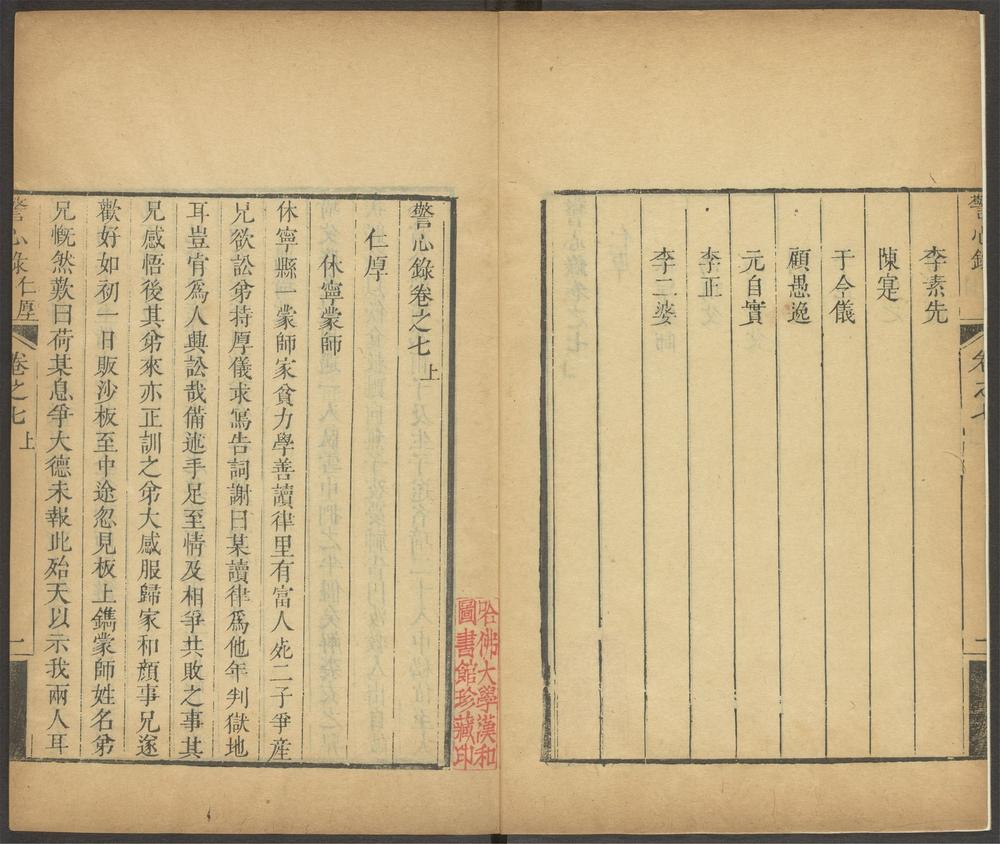 警心錄
卷之七
李素先
陳寔
于令儀
顧愚逸
元自實
李正
李二婆
哈佛大學漢和
圖書館珍藏印
警心錄卷之七上
仁厚
休寧蒙師
休寧縣一蒙師家貧力學善讀律里有富人死二子爭產
兄欲訟弟持厚儀求寫告詞謝曰某讀律為他年判獄地
耳豈肯為人興訟哉備述手足至情及相爭共敗之事其
兄感悟後其弟來亦正訓之弟大感服歸家和顏事兄遂
歡好如初一日販沙板至中途忽見板上鐫蒙師姓名弟
兄慨然歎曰荷某息爭大德未報此殆天以示我兩人耳
警心錄仁厚 卷之七上 一